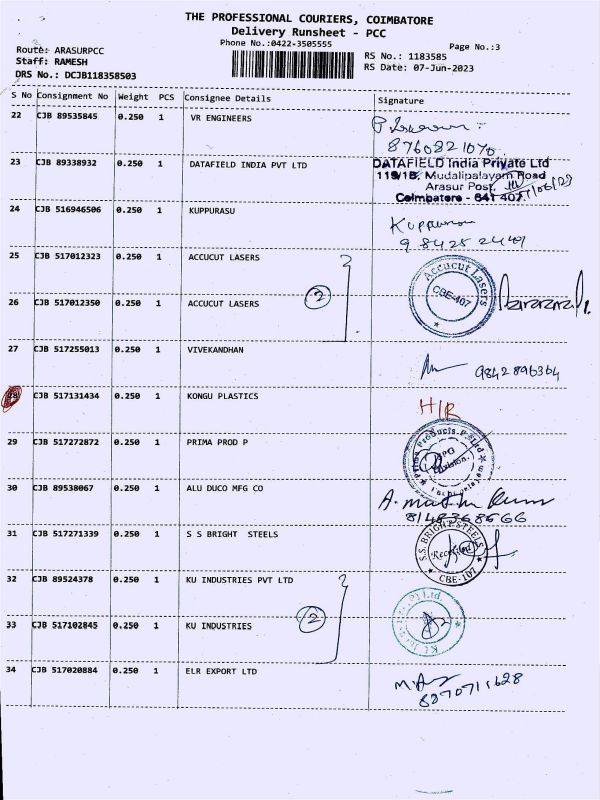 THE PROFESSIONAL COURIERS, COIMBATORE
Delivery Runsheet - PCC
Phone No.:0422-3505555
Page No.:3
Route: ARASURPCC
Staff: RAMESH
DRS No.: DCJB118358503
RS No.: 1183585
RS Date: 07-Jun-2023
S No Consignment No Weight PCS Consignee Details Signature
22 CJB 89535845 0.250 1 VR ENGINEERS
8760821070
23 CJB 89338932 0.250 1 DATAFIELD INDIA PVT LTD
DATAFIELD India Private Ltd
119/1B, Mudalipalayam Road
Arasur Post,
Coimbatore - 641 407.
24 CJB 516946506 0.250 1 KUPPURASU
25 CJB 517012323 0.250 1 ACCUCUT LASERS
Accucut Lasers
CBE-407
2
26 CJB 517012350 0.250 1 ACCUCUT LASERS
27 CJB 517255013 0.250 1 VIVEKANDHAN
9842896364
28 CJB 517131434 0.250 1 KONGU PLASTICS
H/R
29 CJB 517272872 0.250 1 PRIMA PROD P
30 CJB 89538067 0.250 1 ALU DUCO MFG CO
31 CJB 517271339 0.250 1 S S BRIGHT STEELS
S.S. BRIGHT STEELS
CBE-107
32 CJB 89524378 0.250 1 KU INDUSTRIES PVT LTD
2
33 CJB 517102845 0.250 1 KU INDUSTRIES
34 CJB 517020884 0.250 1 ELR EXPORT LTD
8270711628